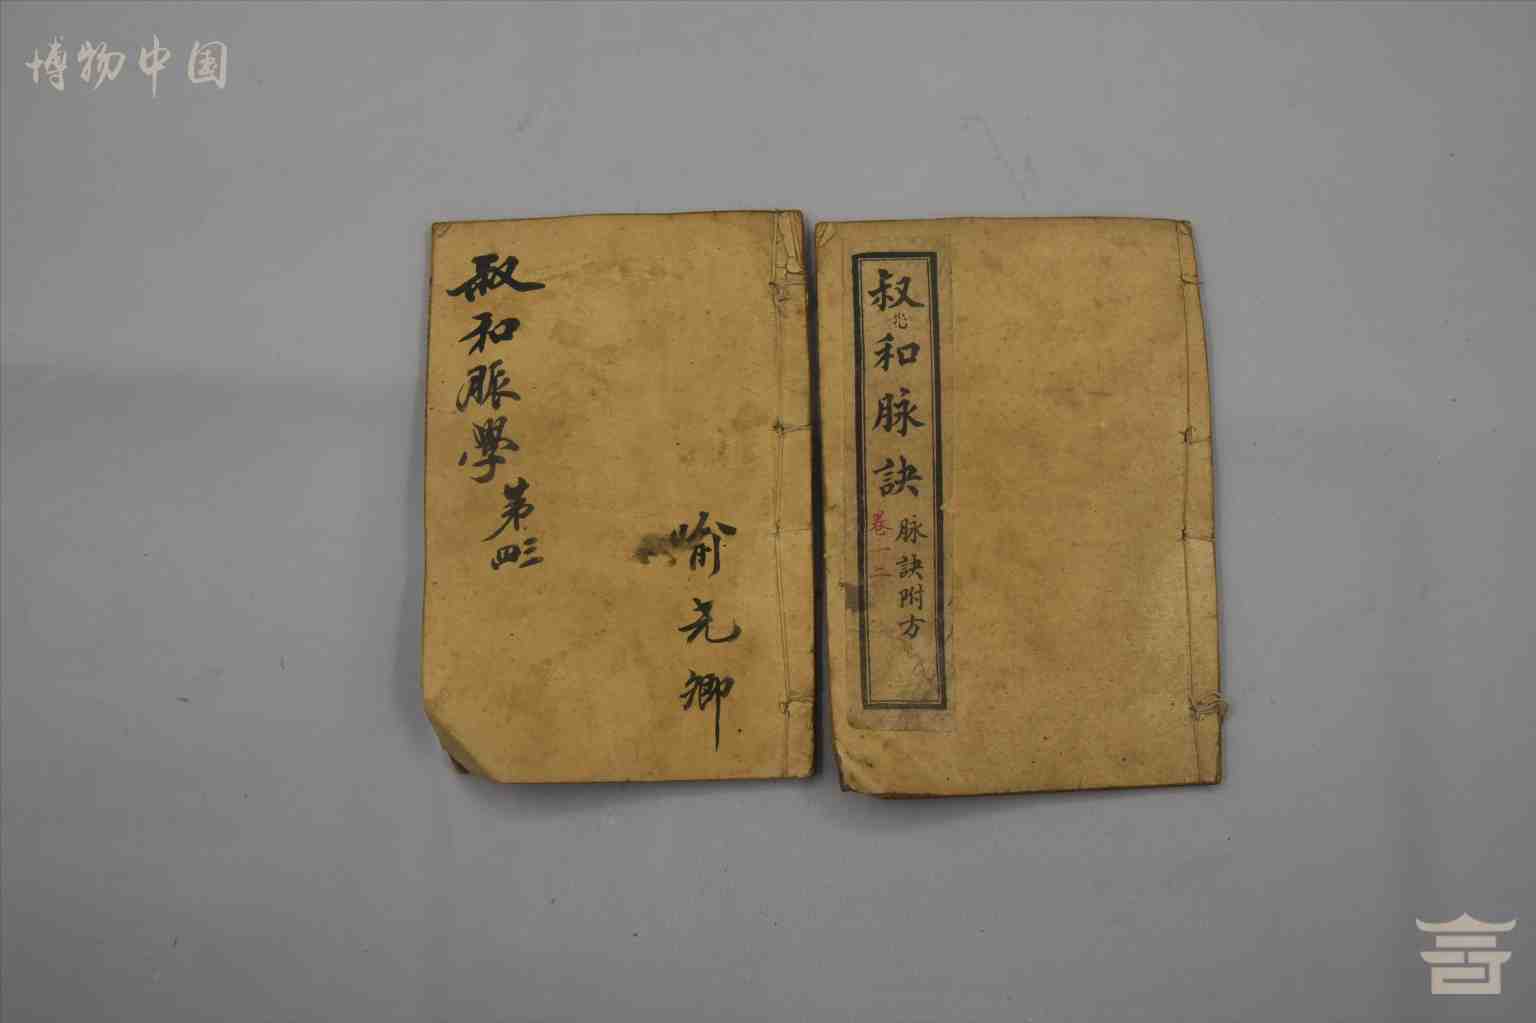 博物中国
叔和脈學
第三四
喻尧卿
叔和脉訣
脉訣附方
卷一二